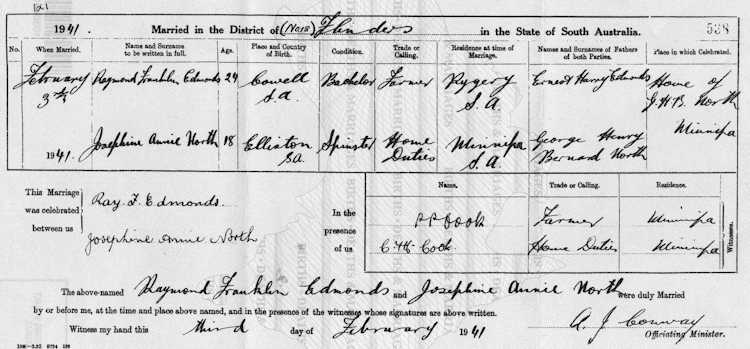 1941. Married in the District of (No 13) Flinders in the State of South Australia. 538
No. When Married. Name and Surname to be written in full. Age. Place and Country of Birth. Condition. Trade or Calling. Residence at time of Marriage. Names and Surnames of Fathers of both Parties. Place in which Celebrated.
February Raymond Franklin Edmonds 24 Cowell Bachelor Farmer Pygery Ernest Harry Edmonds Home of
3rd S.A. S.A. G.H.B. North
Josephine Annie North 18 Elliston Spinster Home Minnipa George Henry Minnipa
1941. SA. Duties S.A. Bernard North
This Marriage was celebrated between us
Ray F. Edmonds.
Josephine Annie North.
In the presence of us
Name. Trade or Calling. Residence.
Cook Farmer Minnipa
Cook Home Duties Minnipa
Witnesses.
The above-named Raymond Franklin Edmonds and Josephine Annie North were duly Married
by or before me, at the time and place above named, and in the presence of the witnesses whose signatures are above written.
Witness my hand this third day of February 1941
A. J. Conway
Officiating Minister.